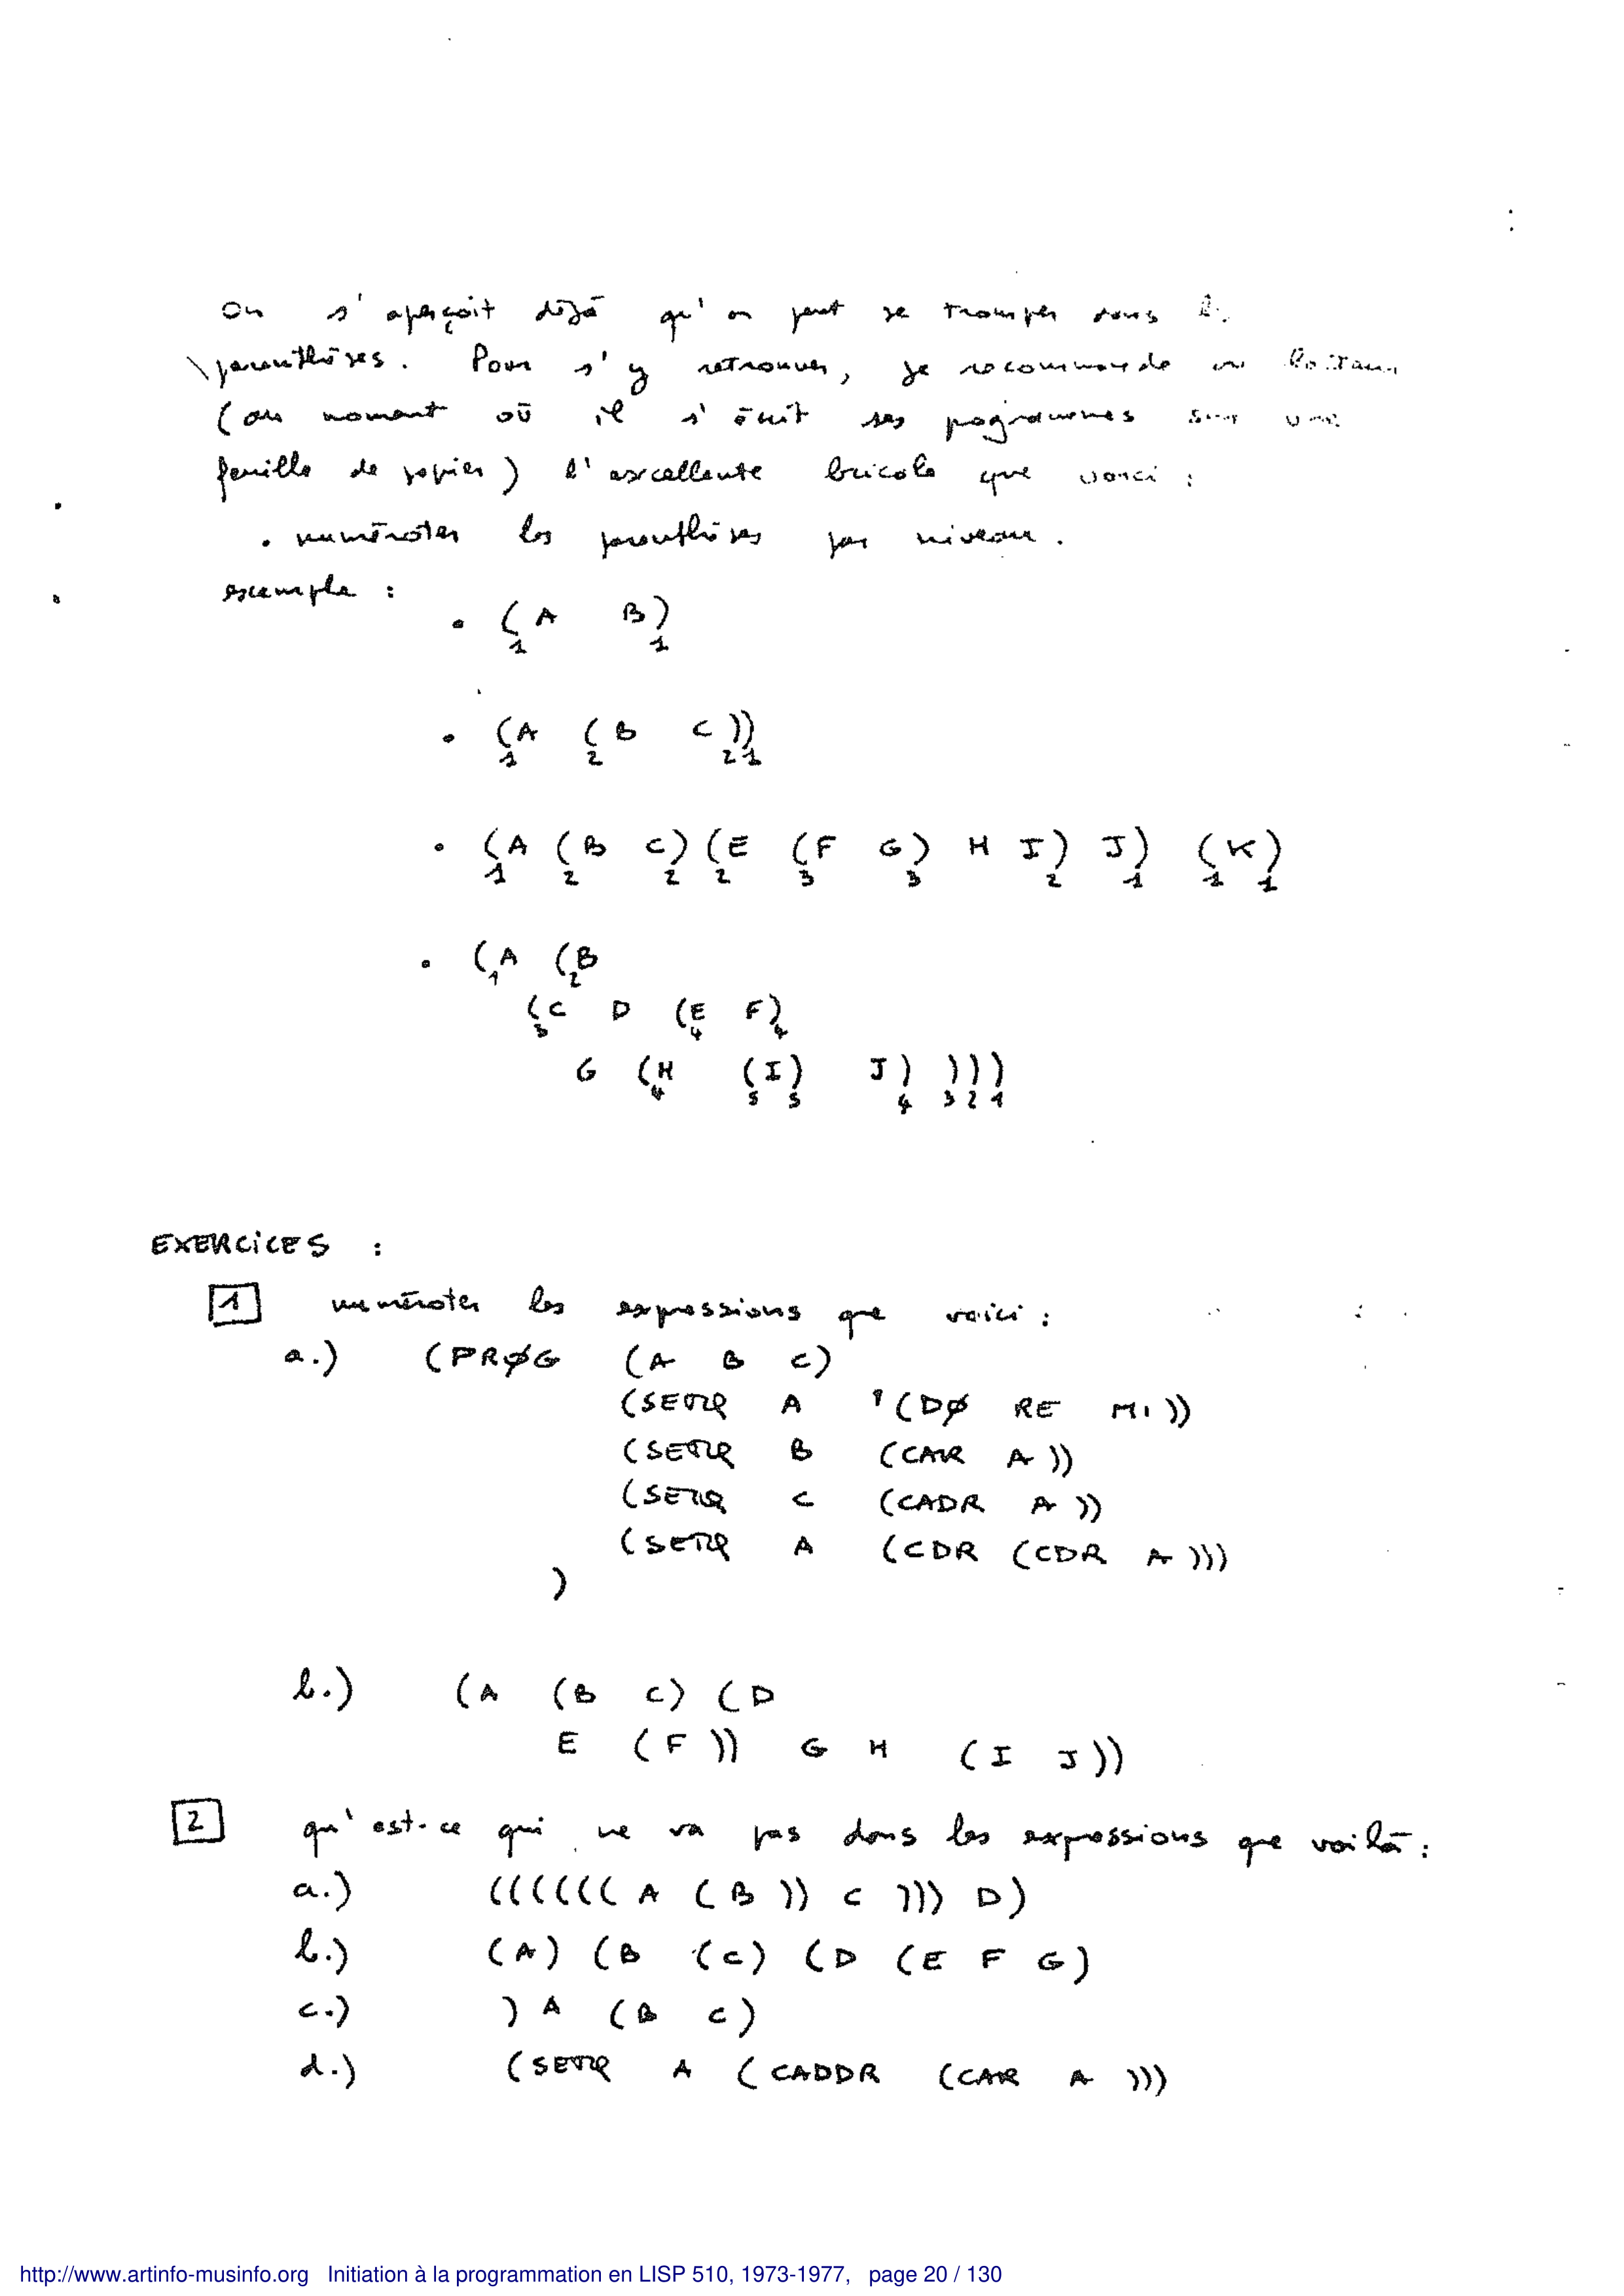 On s'aperçoit déjà qu'on peut se tromper dans
parenthèses. Pour s'y retrouver, je recommande
(au moment où il s'écrit ses pogrammes sur une
feuille de papier) l'excellente bricole que voici :
. numéroter les parenthèses par niveau.
exemple :
• (A B)
1 1
• (A (B C))
1 2 2 1
• (A (B C) (E (F G) H I) J) (K)
1 2 2 2 3 3 2 1 1 1
• (A (B
1 2
(C D (E F)
3 4 4
G (H (I) J) )))
4 5 5 4 3 2 1
EXERCiCES :
1 numéroter les expressions que voici :
a.) (PRØG (A B C)
(SETQ A '(DØ RE MI))
(SETQ B (CAR A))
(SETQ C (CADR A))
(SETQ A (CDR (CDR A)))
)
b.) (A (B C) (D
E (F)) G H (I J))
2 qu'est-ce qui ne va pas dans les expressions que voilà :
a.) ((((((A (B)) C ))) D)
b.) (A) (B (C) (D (E F G)
c.) ) A (B C)
d.) (SETQ A (CADDR (CAR A)))
http://www.artinfo-musinfo.org Initiation à la programmation en LISP 510, 1973-1977, page 20 / 130